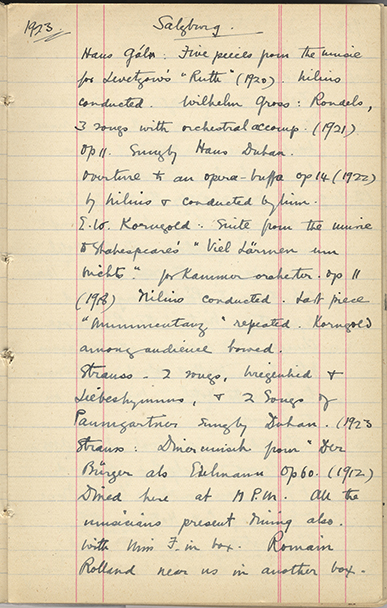 1923. Salzburg.
Hans Gál: Five pieces from the music
for Levetzow's "Ruth" (1920). Nilius
conducted. Wilhelm Gross: Rondels,
3 songs with orchestral accomp. (1921)
Op 11. Sung by Hans Duhan.
Overture to an opera-buffa op 14 (1922)
by Nilius & conducted by him.
E.W. Korngold: Suite from the music
to Shakespeare's "Viel Lärmen um
nichts." for Kammer orchester. op 11
(1918) Nilius conducted. Last piece
"Mummentanz" repeated. Korngold
among audience bowed.
Strauss - 2 songs, Wiegenlied &
Liebeshymnus, & 2 Songs of
Paumgartner sung by Duhan. (1923
Strauss: Dinermusik from "Der
Bürger als Edelmann Op 60. (1912)
Dined here at P.M. All the
musicians present dining also.
With Miss F. in box. Romain
Rolland near us in another box.